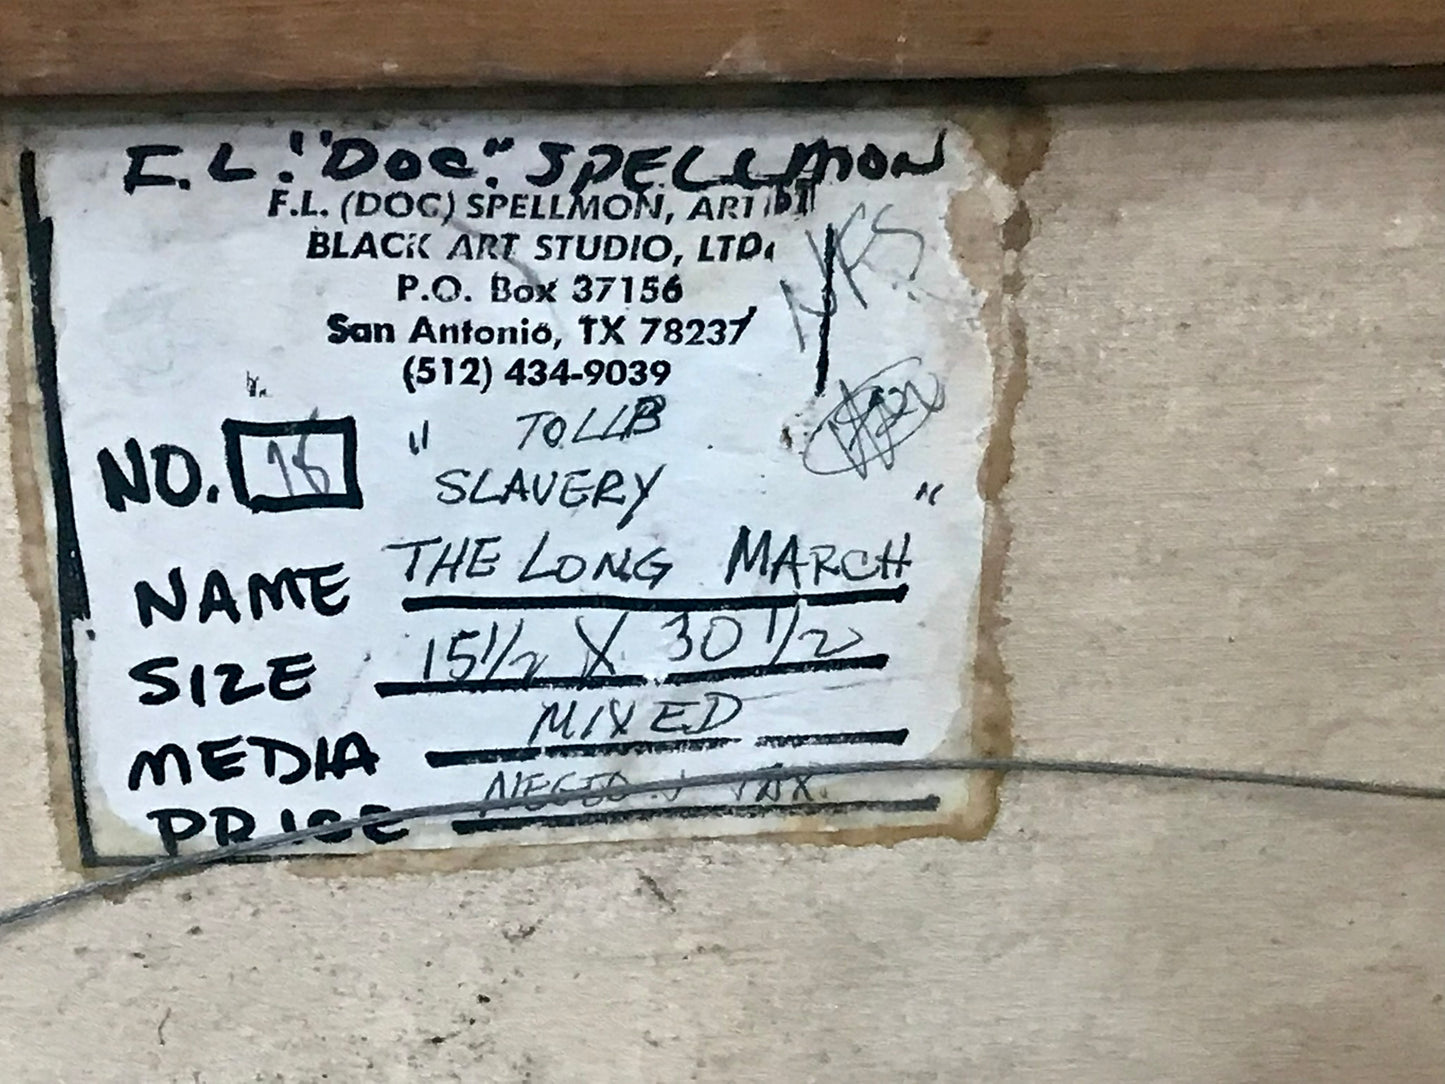 F.L. "DOC" SPELLMON
F.L. (DOC) SPELLMON, ARTIST
BLACK ART STUDIO, LTD.
P.O. Box 37156
San Antonio, TX 78237
(512) 434-9039
NFS
NO.
" TOLLB
SLAVERY "
NAME THE LONG MARCH
SIZE 15 1/2 X 30 1/2
MEDIA MIXED
PRICE TAX